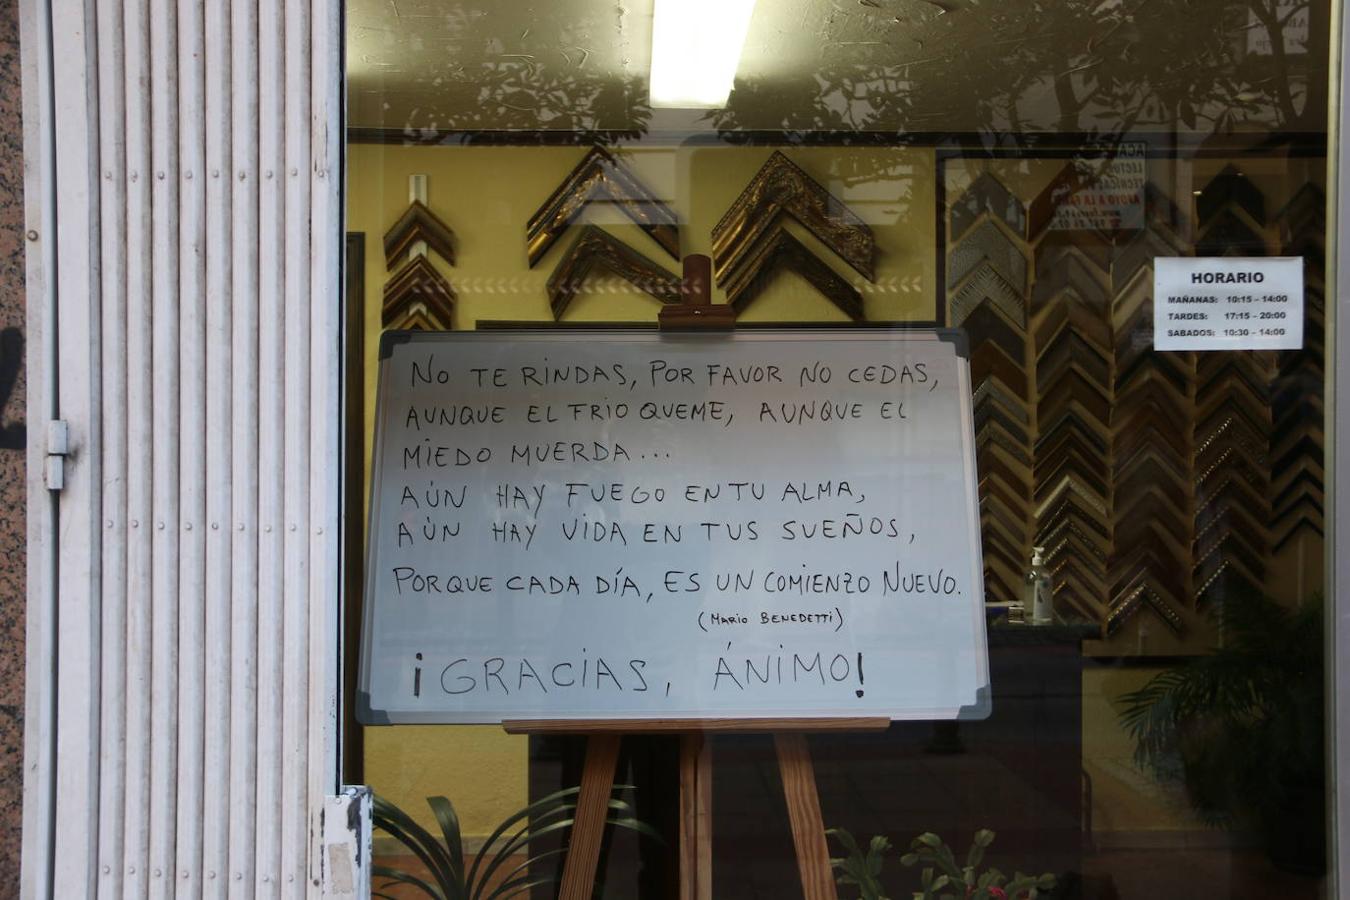 NO TE RINDAS, POR FAVOR NO CEDAS,
AUNQUE EL FRIO QUEME, AUNQUE EL
MIEDO MUERDA...
AÚN HAY FUEGO EN TU ALMA,
AÚN HAY VIDA EN TUS SUEÑOS,
PORQUE CADA DÍA, ES UN COMIENZO NUEVO.
(MARIO BENEDETTI)
¡GRACIAS, ÁNIMO!
HORARIO
MAÑANAS: 10:15 - 14:00
TARDES: 17:15 - 20:00
SABADOS: 10:30 - 14:00